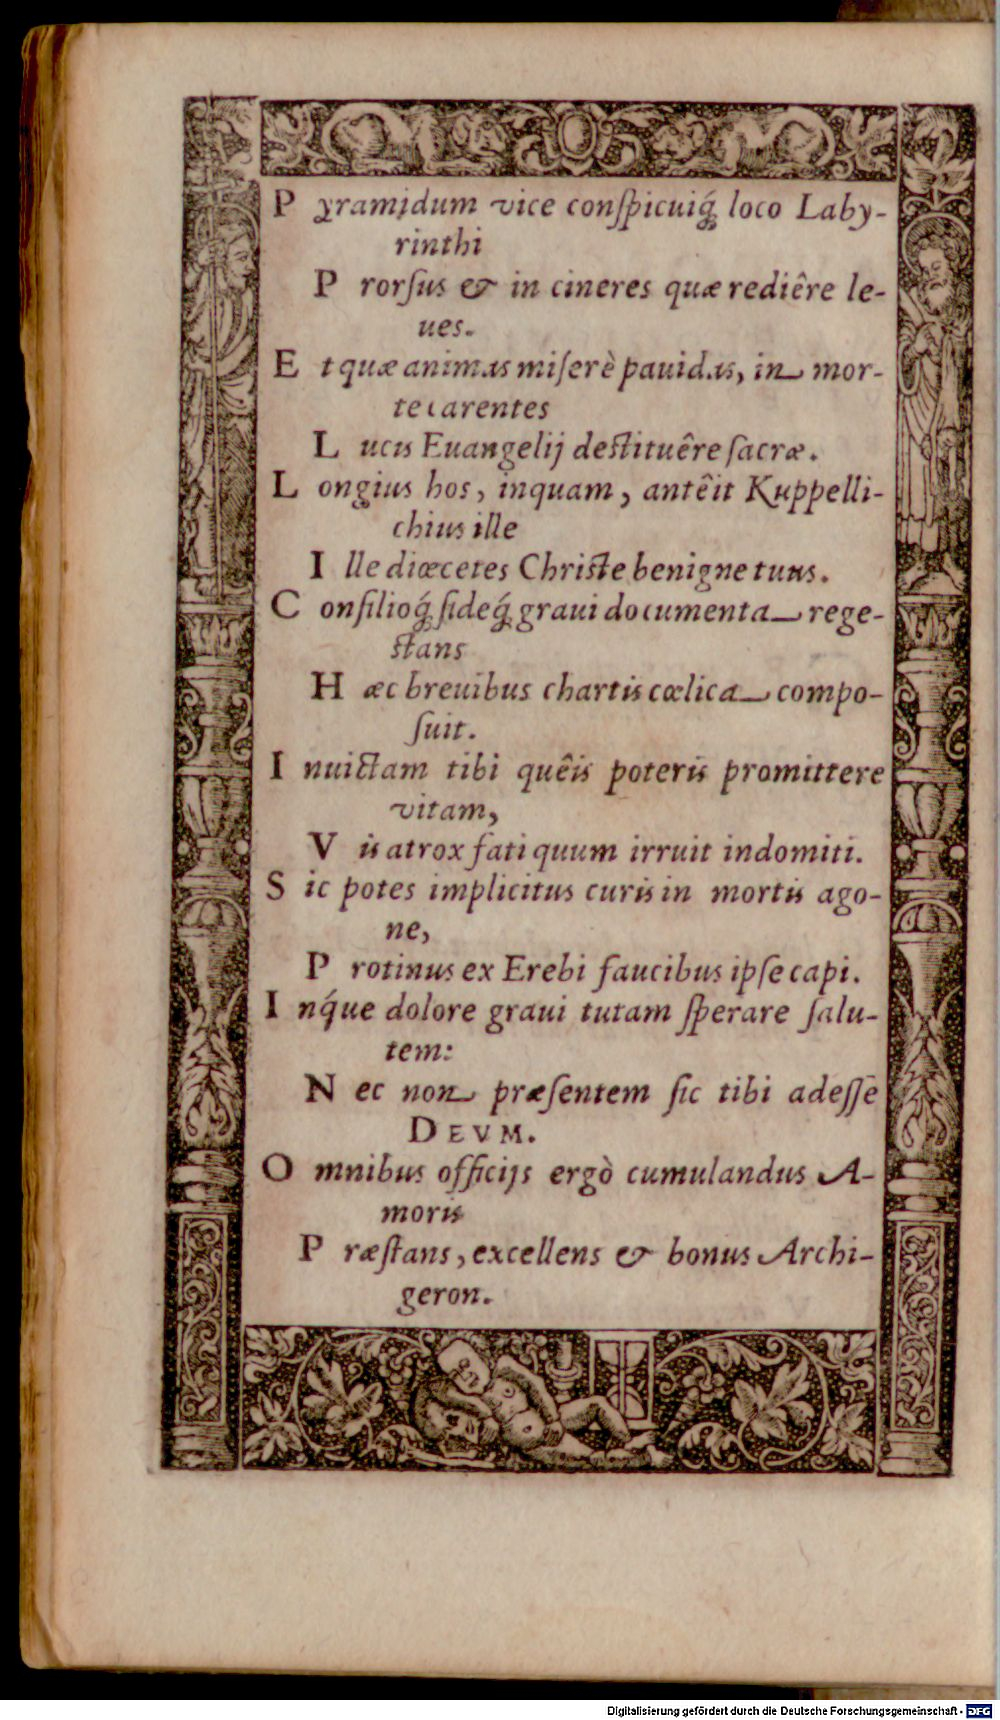 P yramidum vice conſpicuiq́; loco Laby-
rinthi
P rorſus & in cineres quæ rediêre le-
ues.
E t quæ animas miſerè pauidas, in mor-
te carentes
L ucis Euangelij deſtituêre ſacræ.
L ongius hos, inquam, antêit Kuppelli-
chius ille
I lle diœcetes Chriſte benigne tuus.
C onſilioq́; fideq́; graui documenta rege-
ſtans
H æc breuibus chartis cœlica compo-
ſuit.
I nuictam tibi quêis poteris promittere
vitam,
V is atrox fati quum irruit indomiti.
S ic potes implicitus curis in mortis ago-
ne,
P rotinus ex Erebi faucibus ipſe capi.
I nq́ue dolore graui tutam ſperare ſalu-
tem:
N ec non præſentem ſic tibi adeſſe
DEVM.
O mnibus officijs ergò cumulandus A-
moris
P ræſtans, excellens & bonus Archi-
geron.
Digitalisierung gefördert durch die Deutsche Forschungsgemeinschaft - DFG